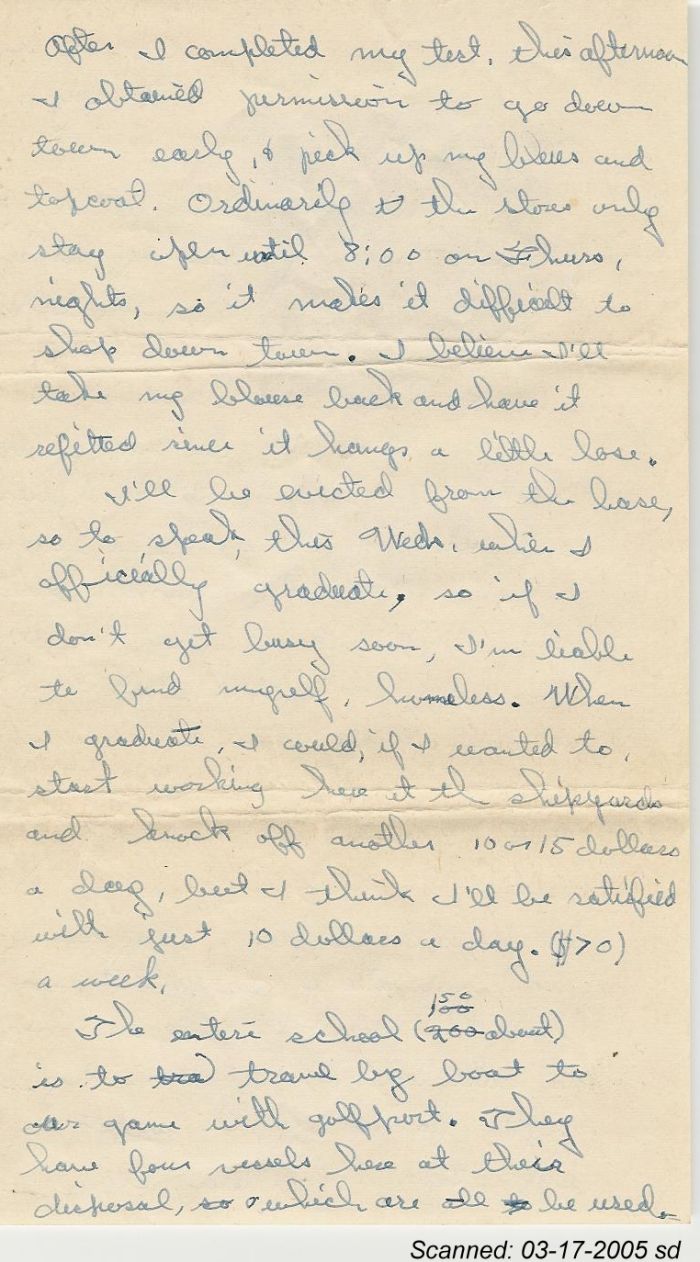 After I completed my test, this afternoon
I obtained permission to go down
town early, & pick up my blues and
topcoat. Ordinarily the stores only
stay open until 8:00 on Thurs,
nights, so it makes it difficult to
shop down town. I believe I'll
take my blouse back and have it
refitted since it hangs a little lose.
I'll be evicted from the base,
so to speak, this Weds. when I
officially graduate, so if I
don't get busy soon, I'm liable
to find myself, homeless. When
I graduate, I could, if I wanted to,
start working here at the shipyards
and knock off another 10 or 15 dollars
a day, but I think I'll be satisfied
with just 10 dollars a day. ($70)
a week.
The entire school (150 about)
is to travel by boat to
our game with gulfport. They
have four vessels here at their
disposal, which are to be used.
Scanned: 03-17-2005 sd